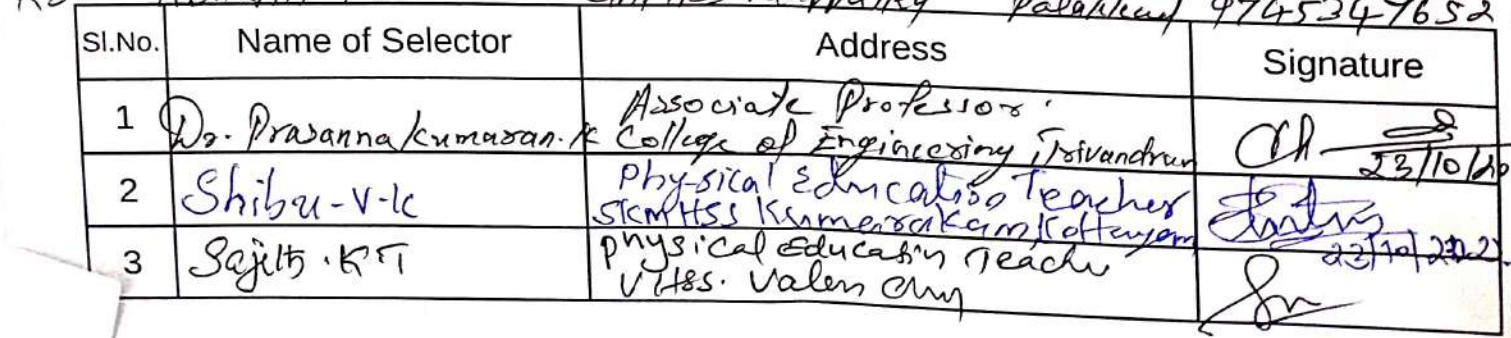 Palakkad 9745347652
Sl.No. Name of Selector Address Signature
1 Dr. Prasannakumaran.K Associate Professor.
College of Engineering, Trivandrum
23/10/20
2 Shibu-V-K Physical Education Teacher
SKMHSS Kumarakam Kottayam
23/10/202
3 Sajith.KT Physical Education Teacher
VHSS.